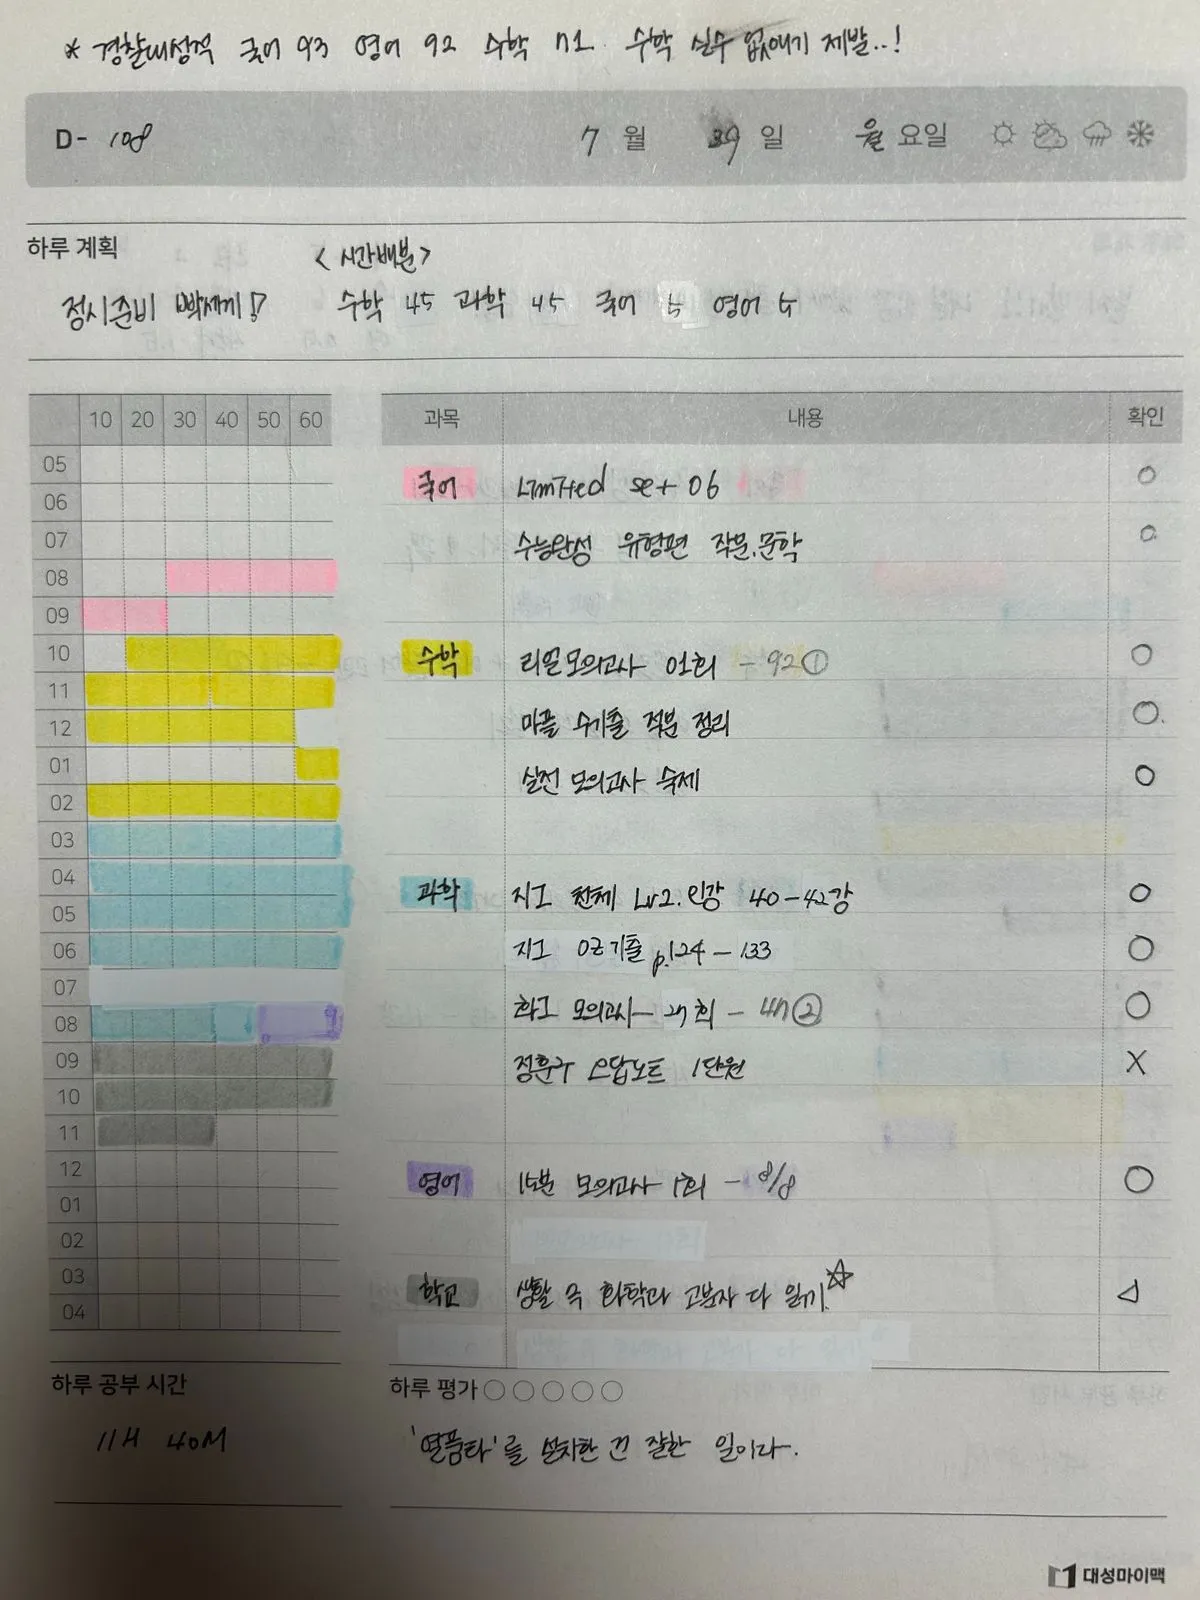 * 경찰대성적 국어 93 영어 92 수학 71. 수학 실수 없애기 제발..!
D- 108 7 월 29 일 월 요일
하루 계획 <시간배분>
정시준비 빡세게! 수학 45 과학 45 국어 5 영어 5
10 20 30 40 50 60
과목 내용 확인
05
06
07
08
09
10
11
12
01
02
03
04
05
06
07
08
09
10
11
12
01
02
03
04
국어 Limited set 06 ○
수능완성 유형편 작문.문학 ○
수학 리얼모의고사 01회 - 92① ○
마플 수기출 적분 정리 ○
실전 모의고사 숙제 ○
과학 지I 천체 Lv2. 인강 40-42강 ○
지I OZ기출 p.124 - 133 ○
화I 모의고사 - 27회 - 47② ○
정훈구 오답노트 1단원 X
영어 15분 모의고사 1회 - 8/8 ○
학교 생활 속 화학과 고분자 다 읽기.☆ △
하루 공부 시간
11H 40M
하루 평가 ○○○○○
'열품타'를 설치한 건 잘한 일이다.
대성마이맥